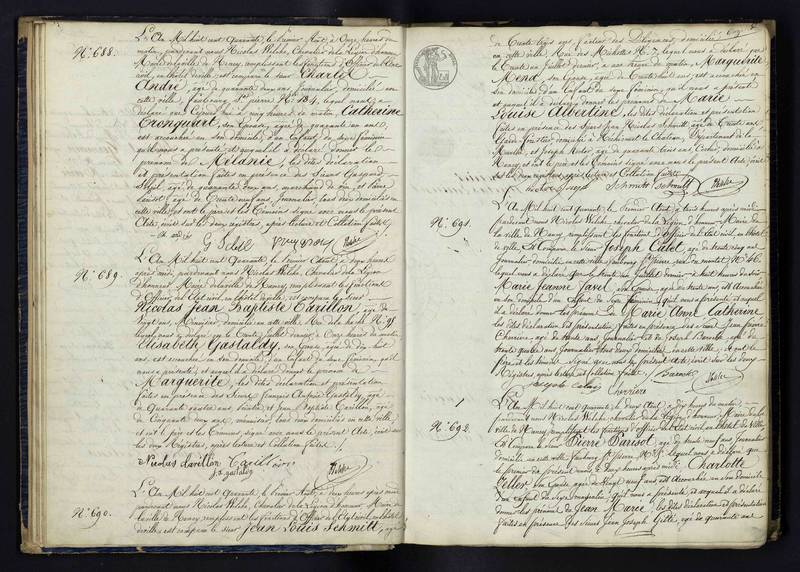 N.° 688.
L'An Mil huit cent Quarante, le premier Août, à Onze heures du
matin, pardevant nous Nicolas Welche, Chevalier de la Légion d'honneur
Maire de la ville de Nancy, remplissant les fonctions d'Officier de l'Etat
civil, en l'hôtel de ville, est comparu le sieur Charlot
André, âgé de quarante deux ans, journalier, domicilié en
cette ville, faubourg St. pierre N.° 184, lequel nous a
déclaré que à heures du matin, Catherine
Cronquart, son Epouse, âgée de quarante un ans,
est accouchée en son domicile, d'un Enfant du sexe féminin
qu'il nous a présenté et auquel il a déclaré donner le
prénom de Mélanie, les dites déclaration
et présentation faites en présence des Sieurs Gaspard
âgé de quarante deux ans, marchand de vin, et
âgé de trente neuf ans, journalier, tous deux domiciliés en
cette ville, et ont le père et les témoins signé avec nous le présent
Acte, inscrit sur les deux registres, après lecture et Collation faites
Welche
N.° 689.
L'An Mil huit cent Quarante, le premier Août, à heures
après midi, pardevant nous Nicolas Welche, Chevalier de la Légion
d'honneur Maire de la ville de Nancy, remplissant les fonctions
d'Officier de l'Etat civil, en l'hôtel de ville, est comparu le sieur
Nicolas Jean Baptiste Carillon, âgé de
vingt ans, Menuisier, domicilié en cette ville, Rue de la hache N.° 98
lequel nous a déclaré que le trente Juillet dernier, à Onze heures du matin
Elisabeth Gastaldy, son Epouse, âgée de dix huit
ans, est accouchée en son domicile, d'un Enfant du sexe féminin, qu'il
nous a présenté, et auquel il a déclaré donner le prénom de
Marguerite, les dites déclaration et présentation
faites en présence des Sieurs François Gastaldy, âgé
de Quarante quatre ans, et Jean Baptiste Carillon, âgé
de Cinquante ans, menuisier, tous deux domiciliés en cette ville
et ont le père et les témoins signé avec nous le présent Acte, inscrit sur
les deux Registres, après lecture et Collation faites.
Nicolas Carillon Carillon
J. F. gastaldy Welche
N.° 690.
L'An Mil huit cent Quarante, le premier Août, à deux heures après midi
pardevant nous Nicolas Welche, Chevalier de la Légion d'honneur, Maire de
la ville de Nancy, remplissant les fonctions d'Officier de l'Etat civil, en l'hôtel
de ville, est comparu le sieur Jean Louis Schmitt, âgé
de trente trois ans, Facteur des Diligences, domicilié
en cette ville, Rue des Michottes N.° 7, lequel nous a déclaré que
le trente un Juillet dernier, à onze heures du matin, Marguerite
Mend, son Epouse, âgée de trente huit ans, est accouchée en
son domicile d'un Enfant du sexe féminin, qu'il nous a présenté
et auquel il a déclaré donner les prénoms de Marie
Louise Albertine, les dites déclaration et présentation
faites en présence des Sieurs Jean Nicolas Schmitt, âgé de trente ans
Garde forestier, domicilié à Département de la
Meurthe, et Joseph âgé de quarante trois ans, Cocher, domicilié à
Nancy, et ont le père et les témoins signé avec nous le présent Acte, inscrit
sur les deux registres, après lecture et Collation faites
Schmitt Schmitt Welche
N.° 691.
L'An Mil huit cent quarante, le premier Août, à trois heures après midi
pardevant nous Nicolas Welche, chevalier de la Légion d'honneur, Maire de
la ville de Nancy, remplissant les fonctions d'officier de l'Etat civil, en l'hôtel
de ville, Est Comparu le sieur Joseph Calet, âgé de trente cinq ans
Journalier, domicilié en cette ville, Faubourg St. Pierre, N.° 46,
lequel nous a déclaré que le trente un Juillet dernier à huit heures du soir
Marie Jeanne Javel, son Epouse, âgée de trente ans, est Accouchée
en son domicile d'un Enfant du sexe féminin, qu'il nous a présenté et auquel
il a déclaré donner les prénoms de Marie Anne Catherine
les dites déclaration et présentation, faites en présence des sieurs Jean François
Cherrière âgé de trente ans, Journalier, et de Joseph âgé de
trente quatre ans, Journalier, tous deux domiciliés en cette ville, et ont le
père et les témoins, signé avec nous le présent Acte inscrit sur les deux
Registres, après lecture et Collation faites.
Joseph calay Cherriere Welche
N.° 692.
L'An Mil huit cent quarante, le deux Août, à dix heures du matin,
pardevant nous Nicolas Welche chevalier de la Légion d'honneur Maire de la
ville de Nancy, remplissant les fonctions d'officier de l'Etat civil, en l'hôtel de ville,
Est Comparu le sieur Pierre Parisot, âgé de trente neuf ans, Journalier
domicilié en cette ville, Faubourg St. Pierre, lequel nous a déclaré que
le premier du présent mois, à heures après midi, Charlotte
Teller, son Epouse, âgée de Vingt neuf ans est Accouchée, en son domicile
d'un enfant du sexe masculin, qu'il nous a présenté, et auquel il a déclaré
donner les prénoms de Jean Marie, les dites déclaration et présentation
faites en présence des sieurs Jean Joseph Gillé, âgé de quarante ans